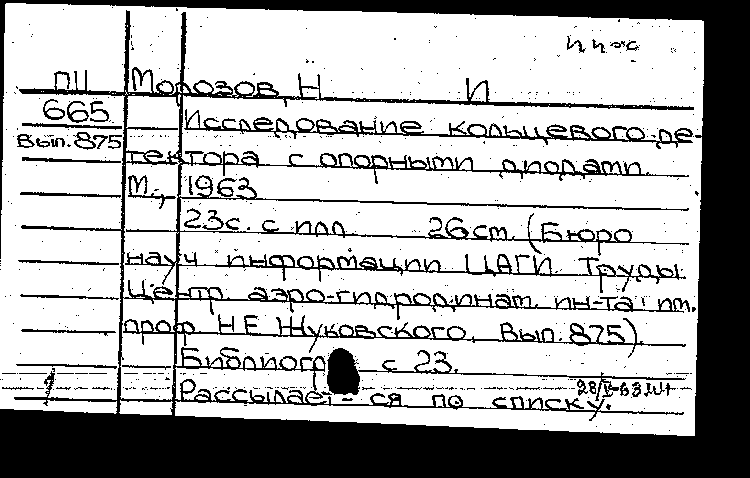 ПII Морозов, Н И
665 Исследование кольцевого де-
Вып. 875 тектора с опорными диодами.
М., 1963
23с. с илл 26см. (Бюро
науч информации ЦАГИ. Труды
Центр. аэро-гидродинам. ин-та им.
проф НЕ Жуковского. Вып. 875).
Библиогр с 23.
Рассылает-ся по списку.